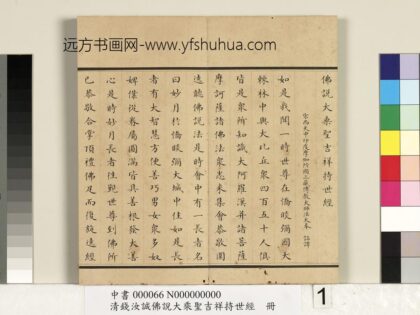 远方书画网-www.yfshuhua.com
佛說大乘聖吉祥持世經
宋西天中印度摩伽陀國三藏傳教大師法天奉 詔譯
如是我聞一時世尊在憍睒彌國大
棘林中與大比丘眾四百五十人俱
皆是眾所知識大阿羅漢并諸菩薩
摩訶薩諸佛法眾悉來集會恭敬圍
遶聽佛說法是時會中有一長者名
曰妙月於憍睒彌大城中住如是長
者有大智慧方便善巧男女眾多奴
婢僕從眷屬圓滿皆具善根發大善
心是時妙月長者往觀世尊到佛所
已恭敬合掌頂禮佛足而復旋遶經
中書 000066 N000000000
清錢汝誠佛說大乘聖吉祥持世經 冊
1